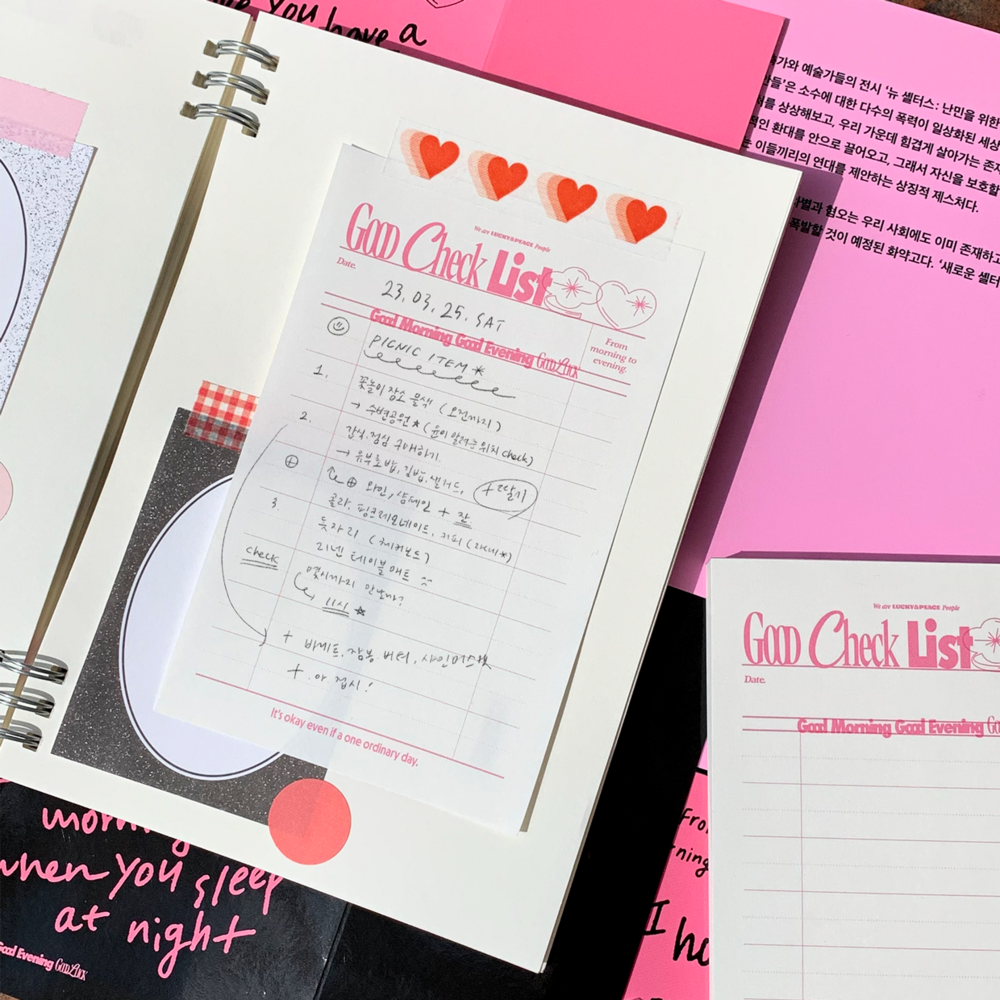 have a
가와 예술가들의 전시 '뉴 셸터스: 난민을 위한
만들'은 소수에 대한 다수의 폭력이 일상화된 세상
상상해보고, 우리 가운데 힘겹게 살아가는 존재
적인 환대를 안으로 끌어오고, 그래서 자신을 보호할
는 이들끼리의 연대를 제안하는 상징적 제스처다.
차별과 혐오는 우리 사회에도 이미 존재하고
폭발할 것이 예정된 화약고다. '새로운 셸터
We are LUCKY&PEACE People
GOOD Check List
Date.
23.03.25.SAT
Good Morning Good Evening GOODLUCK
From
morning to
evening.
PICNIC ITEM *
1. 꽃놀이 장소 물색 (오전까지)
→ 수변공원 ★ (윤이 알려준 위치 check)
2. 간식, 점심 구매하기
→ 유부초밥, 김밥, 샐러드, +딸기
⊕ 와인, 샴페인 + 잔
콜라, 핑크레모네이드, 커피
3 돗자리 (체커보드)
리넨 테이블 매트
check 몇시까지 만날까?
11시 *
+ 바게트, 잠봉 버터, 샤인머스캣
+ 아 접시!
It's okay even if a one ordinary day.
when you sleep
at night
Good Evening GOODLUCK
We are LUCKY&PEACE People
GOOD Check List
Date.
Good Morning Good Evening
I